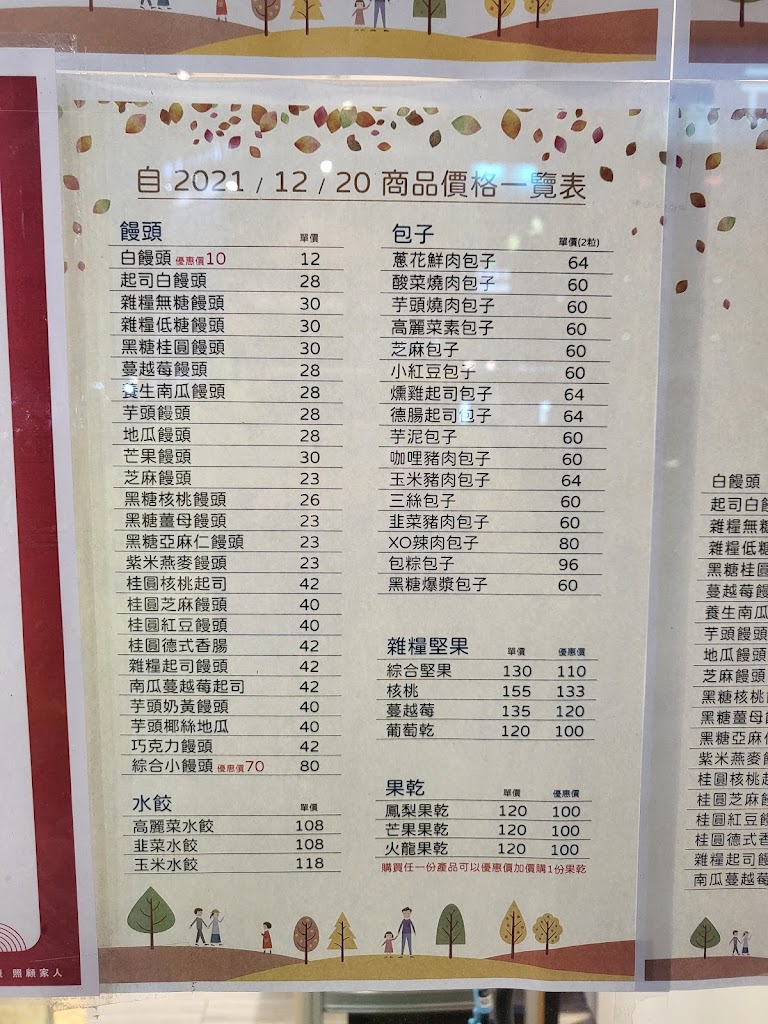 自 2021 / 12 / 20 商品價格一覽表
饅頭 單價
白饅頭 優惠價10 12
起司白饅頭 28
雜糧無糖饅頭 30
雜糧低糖饅頭 30
黑糖桂圓饅頭 30
蔓越莓饅頭 28
養生南瓜饅頭 28
芋頭饅頭 28
地瓜饅頭 28
芒果饅頭 30
芝麻饅頭 23
黑糖核桃饅頭 26
黑糖薑母饅頭 23
黑糖亞麻仁饅頭 23
紫米燕麥饅頭 23
桂圓核桃起司 42
桂圓芝麻饅頭 40
桂圓紅豆饅頭 40
桂圓德式香腸 42
雜糧起司饅頭 42
南瓜蔓越莓起司 42
芋頭奶黃饅頭 40
芋頭椰絲地瓜 40
巧克力饅頭 42
綜合小饅頭 優惠價70 80
水餃 單價
高麗菜水餃 108
韭菜水餃 108
玉米水餃 118
包子 單價(2粒)
蔥花鮮肉包子 64
酸菜燒肉包子 60
芋頭燒肉包子 60
高麗菜素包子 60
芝麻包子 60
小紅豆包子 60
燻雞起司包子 64
德腸起司包子 64
芋泥包子 60
咖哩豬肉包子 60
玉米豬肉包子 64
三絲包子 60
韭菜豬肉包子 60
XO辣肉包子 80
包粽包子 96
黑糖爆漿包子 60
雜糧堅果 單價 優惠價
綜合堅果 130 110
核桃 155 133
蔓越莓 135 120
葡萄乾 120 100
果乾 單價 優惠價
鳳梨果乾 120 100
芒果果乾 120 100
火龍果乾 120 100
購買任一份產品可以優惠價加價購1份果乾
照顧家人
白饅頭
起司白饅
雜糧無糖
雜糧低糖
黑糖桂圓
蔓越莓饅
養生南瓜
芋頭饅頭
地瓜饅頭
芝麻饅頭
黑糖核桃
黑糖薑母
黑糖亞麻
紫米燕麥
桂圓核桃
桂圓芝麻
桂圓紅豆
桂圓德式
雜糧起司
南瓜蔓越莓